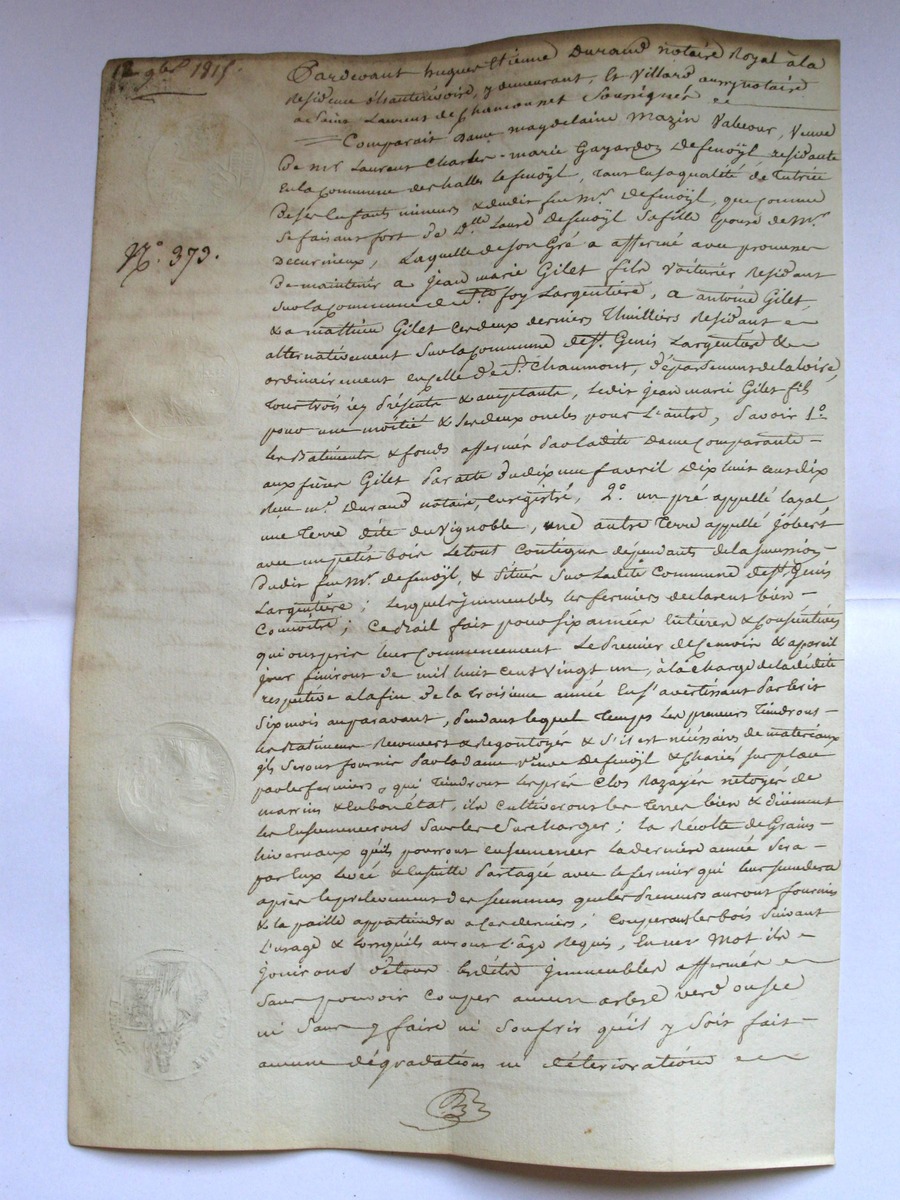 12 9bre 1815.
Pardevant hugues Etienne Durand notaire Royal à la
Residence d'hauterivoire, y demeurant, Et Villard aussy notaire
de Saint Laurent de Chamousset Soussignés
Comparait Dame magdelaine Mazin Valeour, Veuve
De mr. Laurent Charles-marie Gayardon Defenoÿl residante
En la commune des halles lefenoÿl, tant En sa qualité de Tutrice
De ses Enfants mineurs & dudit feu Mr. defenoÿl, que comme
Se faisant fort de Dlle Laure Defenoÿl sa fille Epouse de Mr.
N.° 373.
Decurrieux, Laquelle de son Gré a affermé avec promesse
De maintenir a Jean marie Gilet fils Voiturier Residant
Sur la Commune de Ste foy Largentière, a antoine Gilet,
& a mathieu Gilet Ces deux derniers Thuilliers Residant
alternativement Sur la Commune de St. Genis Largentière &
ordinairement En celle De St. Chaumont, département de la Loire,
Tous trois icy présents & acceptants, ledit Jean marie Gilet fils
pour une moitié & Ses deux oncles pour L'autre, Savoir 1.°
les Batiments & fonds affermés Par la dite Dame Comparante
aux frères Gilet Par acte Du dix neuf avril Dix huit cent dix
Reçu me. Durand notaire, Enregistré, 2.° un pré appellé
une Terre dite du Vignoble, une autre Terre appellé Jobert
avec un petit bois Le tout Contigue dépendants de la succession
Dudit feu Mr. defenoÿl, & Situés Sur La dite Commune de St. Genis
Largentière; Lesquels immeubles les fermiers declarent bien
Connoître; Ce Bail fait pour six années Entières & Consécutives
qui ont pris leur Commencement Le Premier de Ce mois & a pareil
jour finiront de mil huit Cent Vingt un, à la Charge de la dédite
respective a la fin de la Troisieme année En s'avertissant Par Ecrit
Six mois auparavant, Pendant lequel Temps les preneurs Tiendront
les Batiments Recouverts & Regoutoyés & S'il est nécéssaire de matériaux
ils Seront fournis Par la dame veuve Defenoÿl & Chariés Sur place
par les fermiers, qui Tiendront les prés Clos Razayés netoyés de
& En bon état, ils Cultiveront les Terres bien & düement
les Ensemenceront Sans les Surcharger; la Récolte de Grains
hivernaux qu'ils pourront ensemencer la dernière année Sera
par Eux levée & Ensuitte Partagée avec le fermier qui leur succedera
après le prélevement des semences que les Preneurs auront fournies
& la paille appartiendra a Ces derniers; Couperont les bois Suivant
L'usage & lorsqu'ils auront L'âge Requis, En un Mot ils
jouiront De tous lesdits immeubles affermés
Sans pouvoir couper aucun arbre verd ou sec
ni Sans y faire ni Soufrir qu'il y Soit fait
aucune dégradations ni détériorations